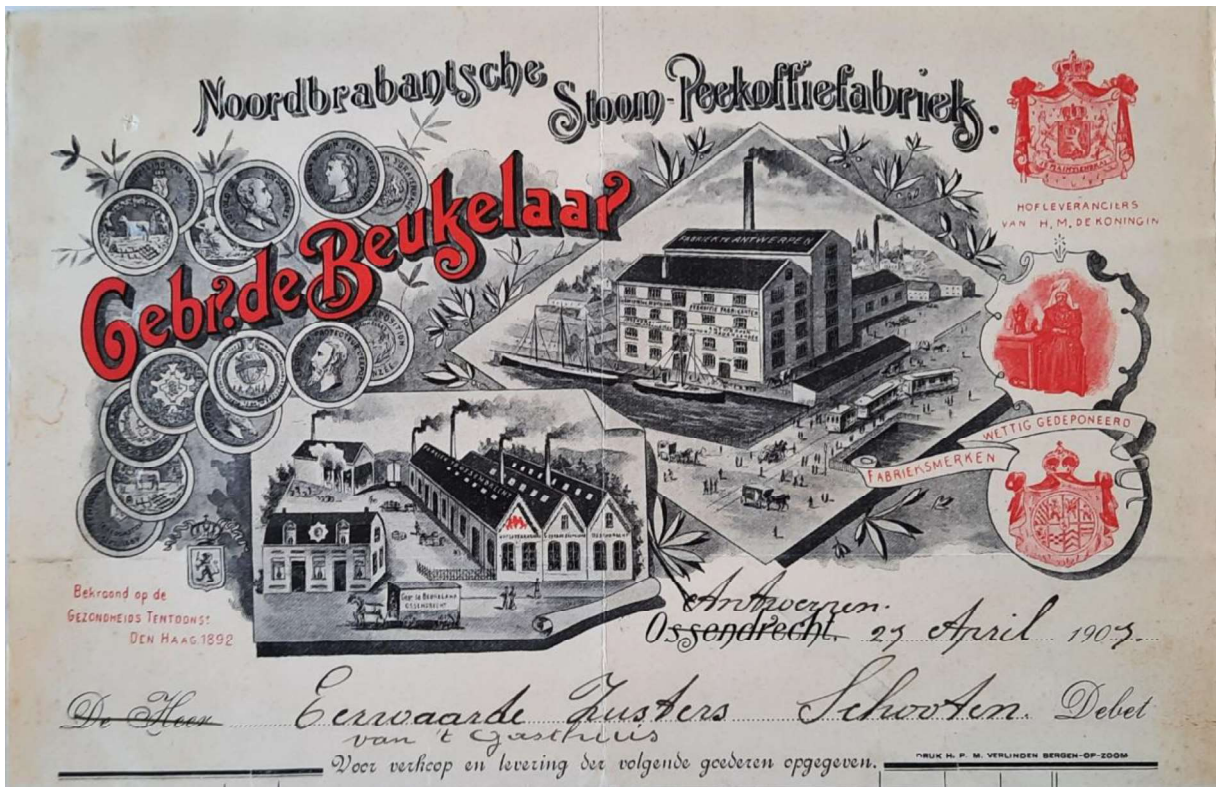 Noordbrabantsche Stoom-Peekoffiefabriek.
Gebr. de Beukelaar
HOFLEVERANCIERS
VAN H. M. DE KONINGIN
FABRIEK TE ANTWERPEN
WETTIG GEDEPONEERD
FABRIEKSMERKEN
GEBR. DE BEUKELAAR
OSSENDRECHT
Bekroond op de
GEZONDHEIDS TENTOONST
DEN HAAG 1892
Antwerpen.
Ossendrecht. April 190
De Heer Eerwaarde Zusters Schooten. Debet
van 't Gasthuis
Voor verkoop en levering der volgende goederen opgegeven.
DRUK H. P. M. VERLINDEN BERGEN-OP-ZOOM